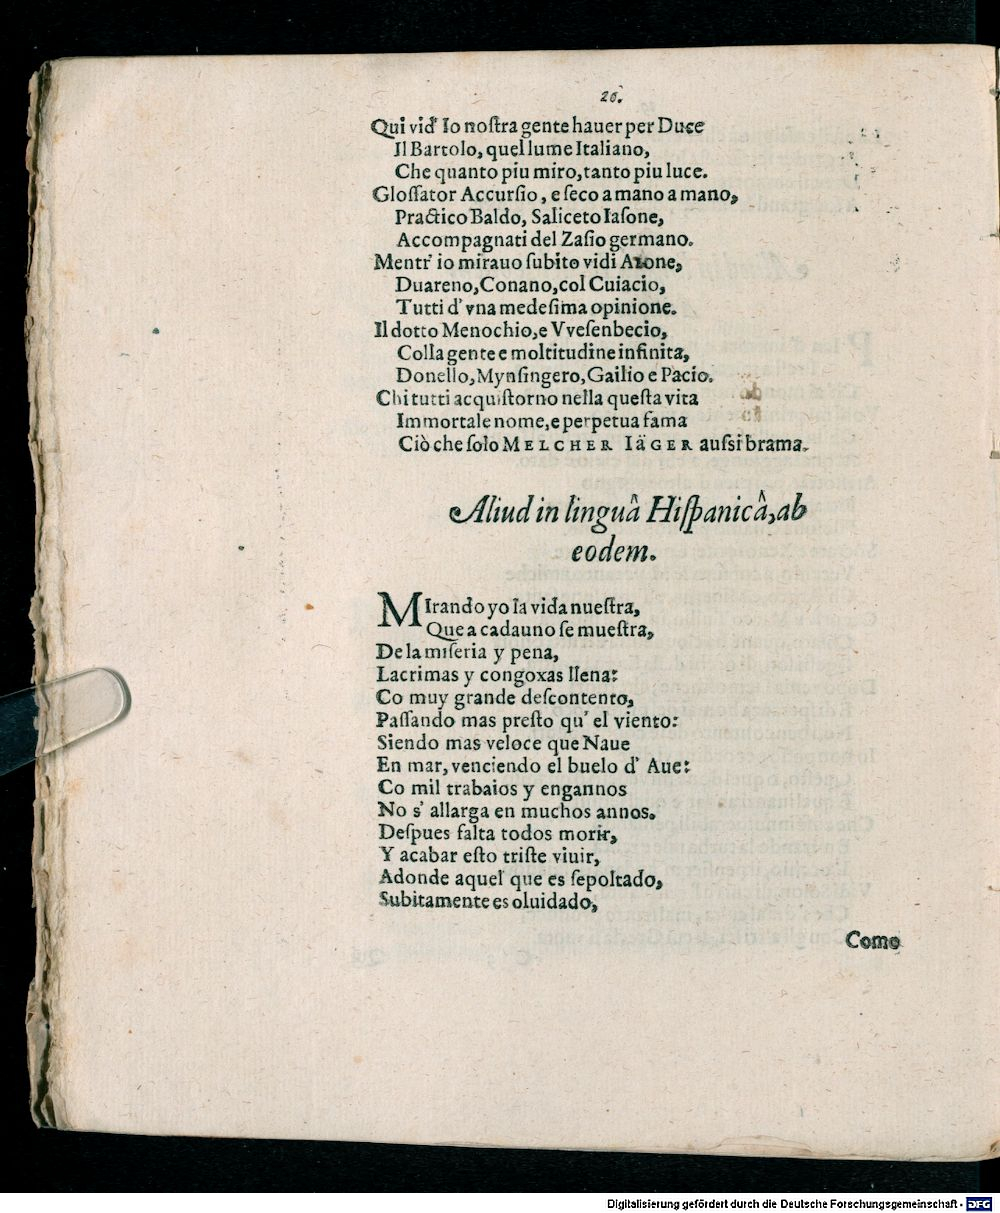 26.
Qui vid' Io noſtra gente hauer per Duce
Il Bartolo, quel lume Italiano,
Che quanto piu miro, tanto piu luce.
Gloſſator Accurſio, e ſeco a mano a mano,
Practico Baldo, Saliceto Iaſone,
Accompagnati del Zaſio germano.
Mentr' io mirauo ſubito vidi Azone,
Duareno, Conano, col Cuiacio,
Tutti d' vna medeſima opinione.
Il dotto Menochio, e Vveſenbecio,
Colla gente e moltitudine infinita,
Donello, Mynſingero, Gailio e Pacio.
Chi tutti acquiſtorno nella queſta vita
Immortale nome, e perpetua fama
Ciò che ſolo MELCHER IäGER auſsi brama.
Aliud in linguâ Hiſpanicâ, ab
eodem.
MIrando yo la vida nueſtra,
Que a cadauno ſe mueſtra,
De la miſeria y pena,
Lacrimas y congoxas llena:
Co muy grande deſcontento,
Paſſando mas preſto qu' el viento:
Siendo mas veloce que Naue
En mar, venciendo el buelo d' Aue:
Co mil trabaios y engannos
No s' allarga en muchos annos.
Deſpues falta todos morir,
Y acabar eſto triſte viuir,
Adonde aquel que es ſepoltado,
Subitamente es oluidado,
Como
Digitalisierung gefördert durch die Deutsche Forschungsgemeinschaft - DFG